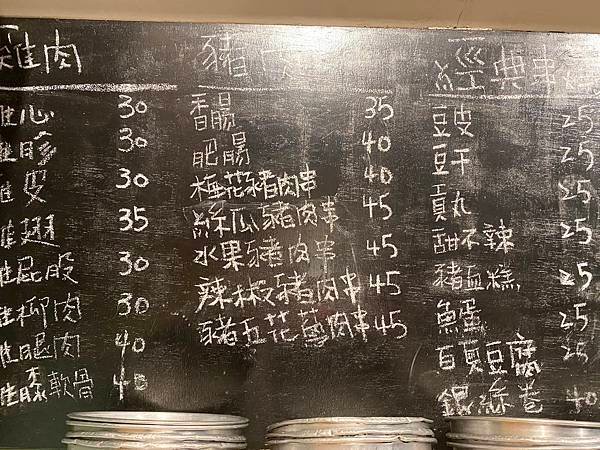 雞肉
雞心 30
雞胗 30
雞皮 30
雞翅 35
雞屁股 30
雞柳肉 30
雞腿肉 40
雞膝軟骨 40
豬肉
香腸 35
肥腸 40
梅花豬肉串 40
絲瓜豬肉串 45
水果豬肉串 45
辣椒豬肉串 45
豬五花蔥肉串 45
經典串
豆皮 25
豆干 25
貢丸 25
甜不辣 25
豬血糕 25
魚蛋 25
百頁豆腐 25
銀絲卷 40